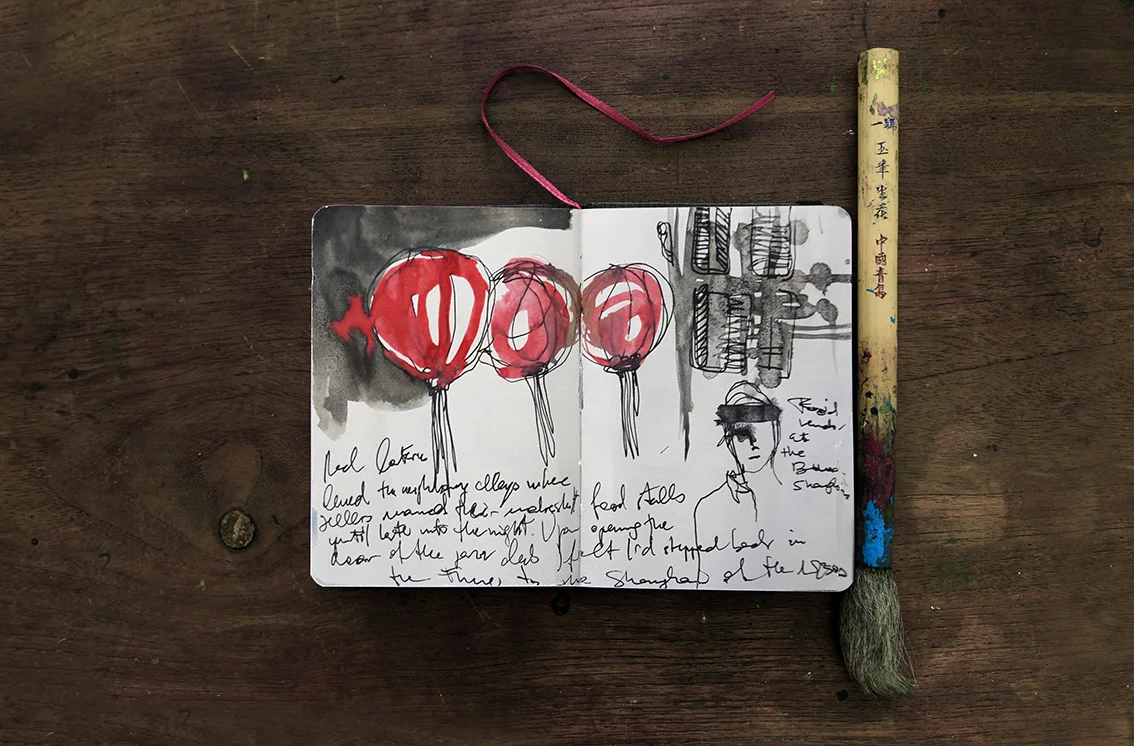 Red lanterns
lined the neighbouring alleys where
sellers manned their makeshift food stalls
until late into the night. Upon opening the
door of the jazz club I felt I'd stepped back in
the Time, to the Shanghai of the 1930s
at
the
Shanghai
一號
玉筆生花
中國青島